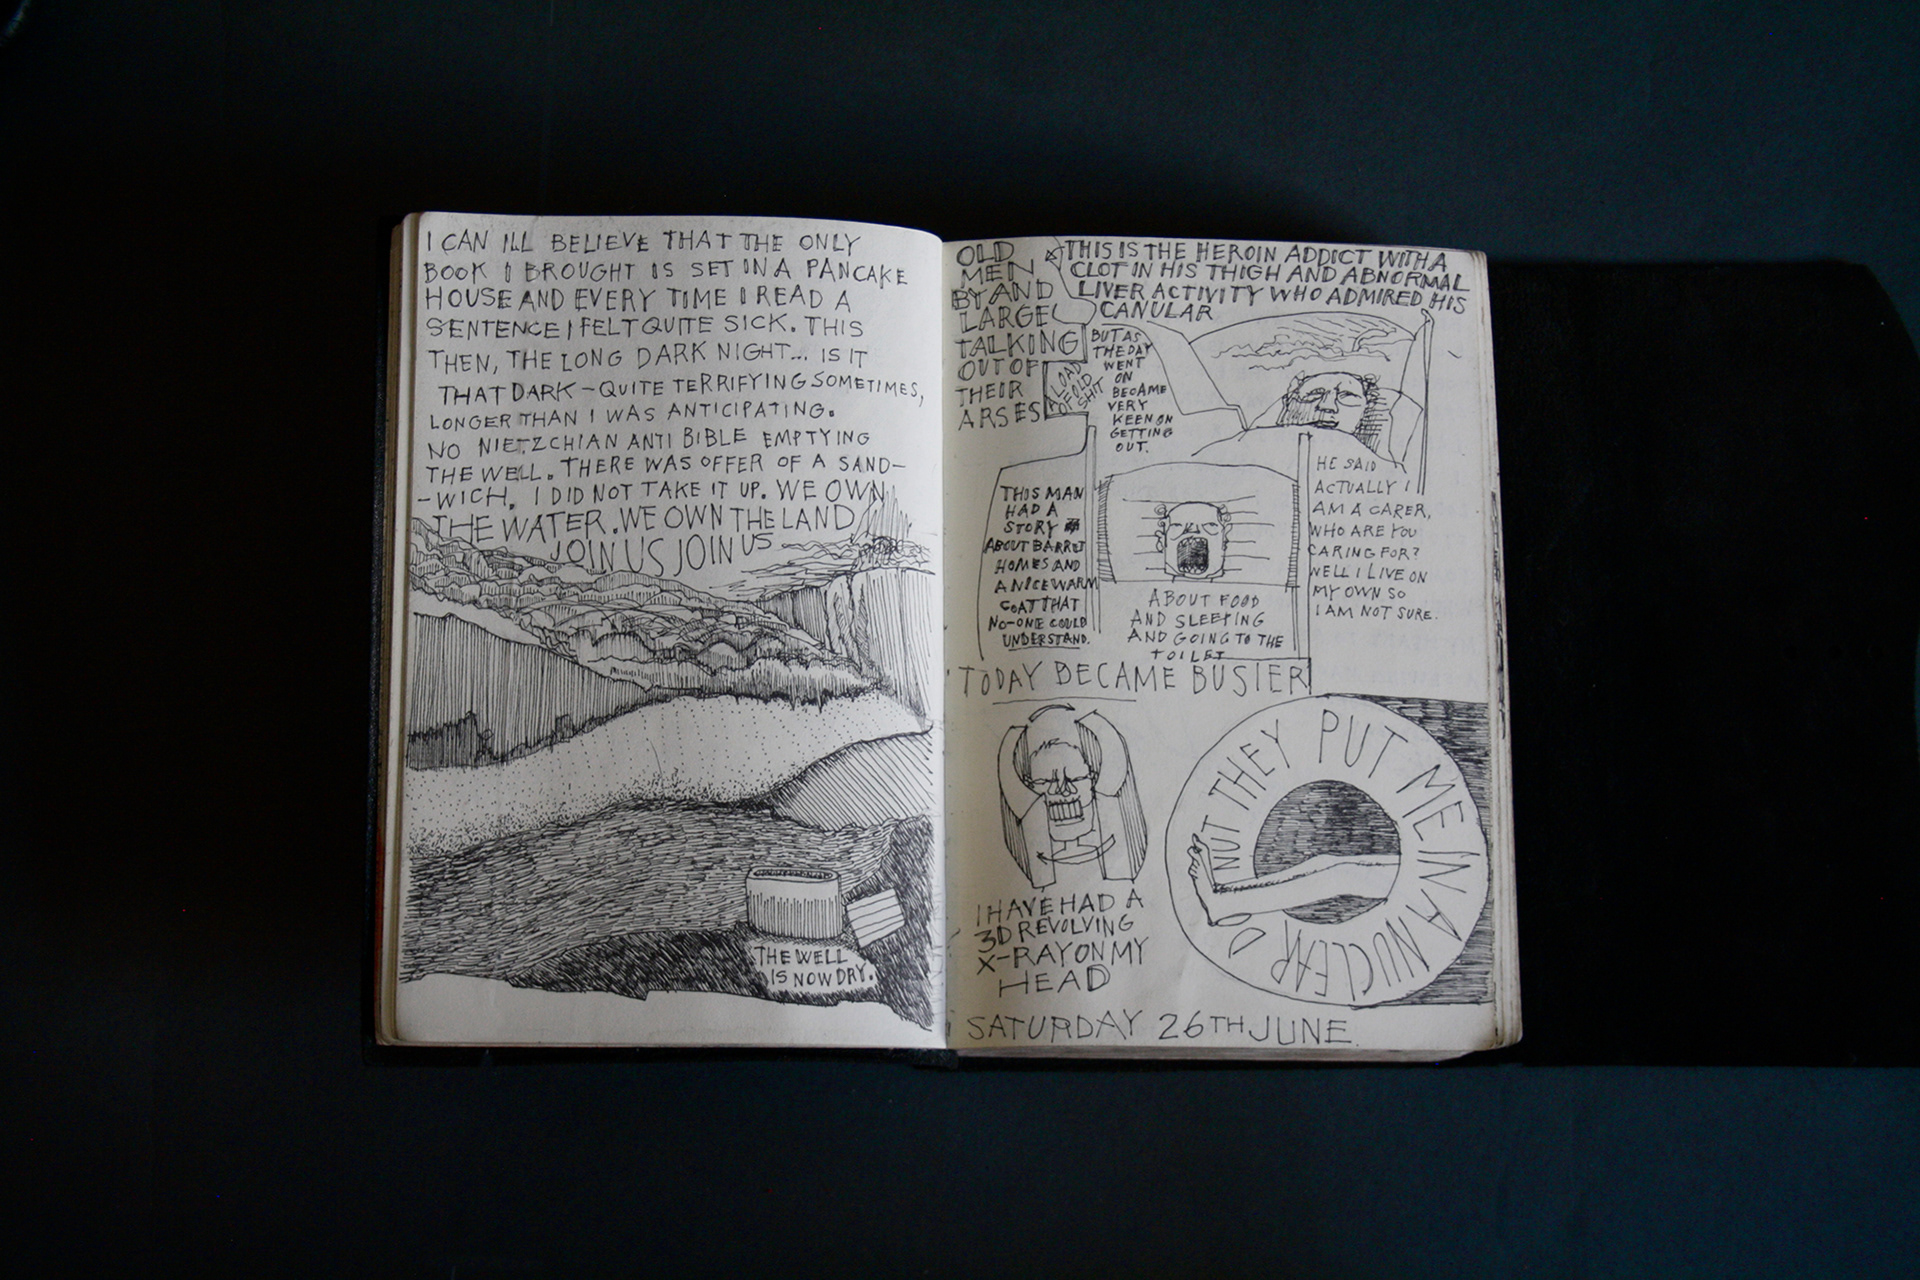 I CAN ILL BELIEVE THAT THE ONLY
BOOK I BROUGHT IS SET IN A PANCAKE
HOUSE AND EVERY TIME I READ A
SENTENCE I FELT QUITE SICK. THIS
THEN, THE LONG DARK NIGHT... IS IT
THAT DARK – QUITE TERRIFYING SOMETIMES,
LONGER THAN I WAS ANTICIPATING.
NO NIETZCHIAN ANTI BIBLE EMPTYING
THE WELL. THERE WAS OFFER OF A SAND–
–WICH. I DID NOT TAKE IT UP. WE OWN
THE WATER. WE OWN THE LAND
JOIN US JOIN US
THE WELL
IS NOW DRY.
OLD
MEN
BY AND
LARGE
TALKING
OUT OF
THEIR
ARSES
A LOAD
OF OLD
SHIT
THIS IS THE HEROIN ADDICT WITH A
CLOT IN HIS THIGH AND ABNORMAL
LIVER ACTIVITY WHO ADMIRED HIS
CANULAR
BUT AS
THE DAY
WENT
ON
BECAME
VERY
KEEN ON
GETTING
OUT.
THIS MAN
HAD A
STORY
ABOUT BARRET
HOMES AND
A NICE WARM
COAT THAT
NO-ONE COULD
UNDERSTAND.
ABOUT FOOD
AND SLEEPING
AND GOING TO THE
TOILET
HE SAID
ACTUALLY I
AM A CARER,
WHO ARE YOU
CARING FOR?
WELL I LIVE ON
MY OWN SO
I AM NOT SURE.
TODAY BECAME BUSIER
I HAVE HAD A
3D REVOLVING
X-RAY ON MY
HEAD
THEY PUT ME IN A NUCLEAR DONUT
SATURDAY 26TH JUNE.